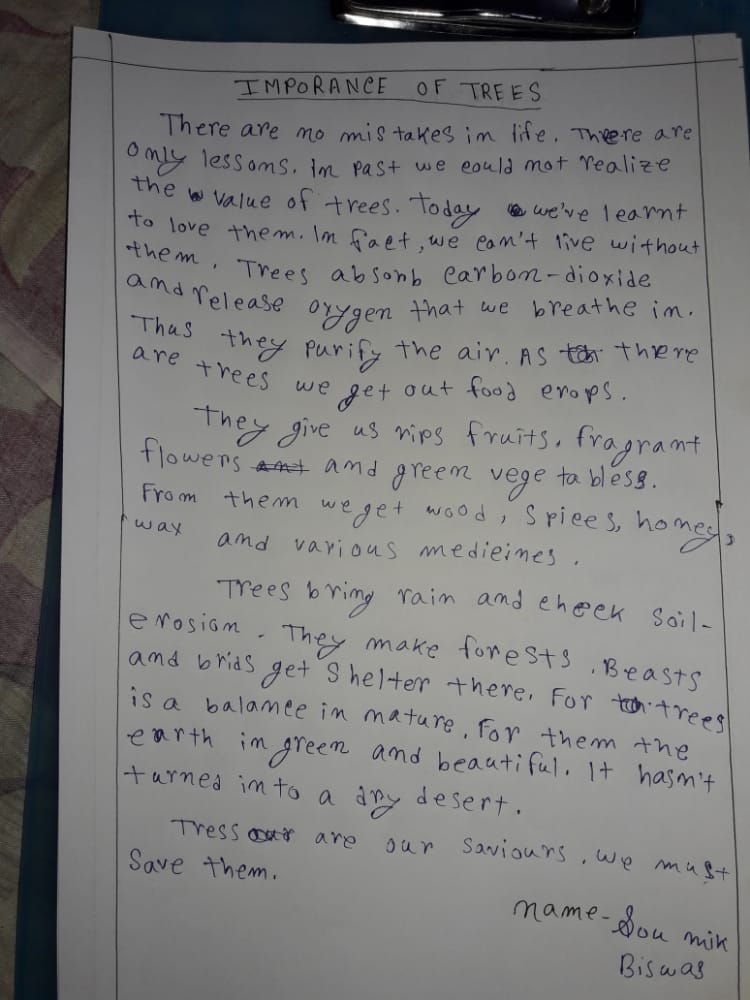 IMPORANCE OF TREES
There are no mistakes in life. There are
only lessons. In past we could not realize
the value of trees. Today we've learnt
to love them. In fact, we can't live without
them. Trees absonb carbon-dioxide
and release oxygen that we breathe in.
Thus they purify the air. As there
are trees we get out food crops.
They give us rips fruits. fragrant
flowers and green vege tabless.
From them we get wood, spices, honey,
wax and various medicines.
Trees bring rain and check soil-
erosion. They make forests. Beasts
and brids get Shelter there. For trees
is a balance in nature. For them the
earth in green and beautiful. It hasn't
turned into a dry desert.
Tress are our saviours. we must
Save them.
name- Sou mik
Biswas